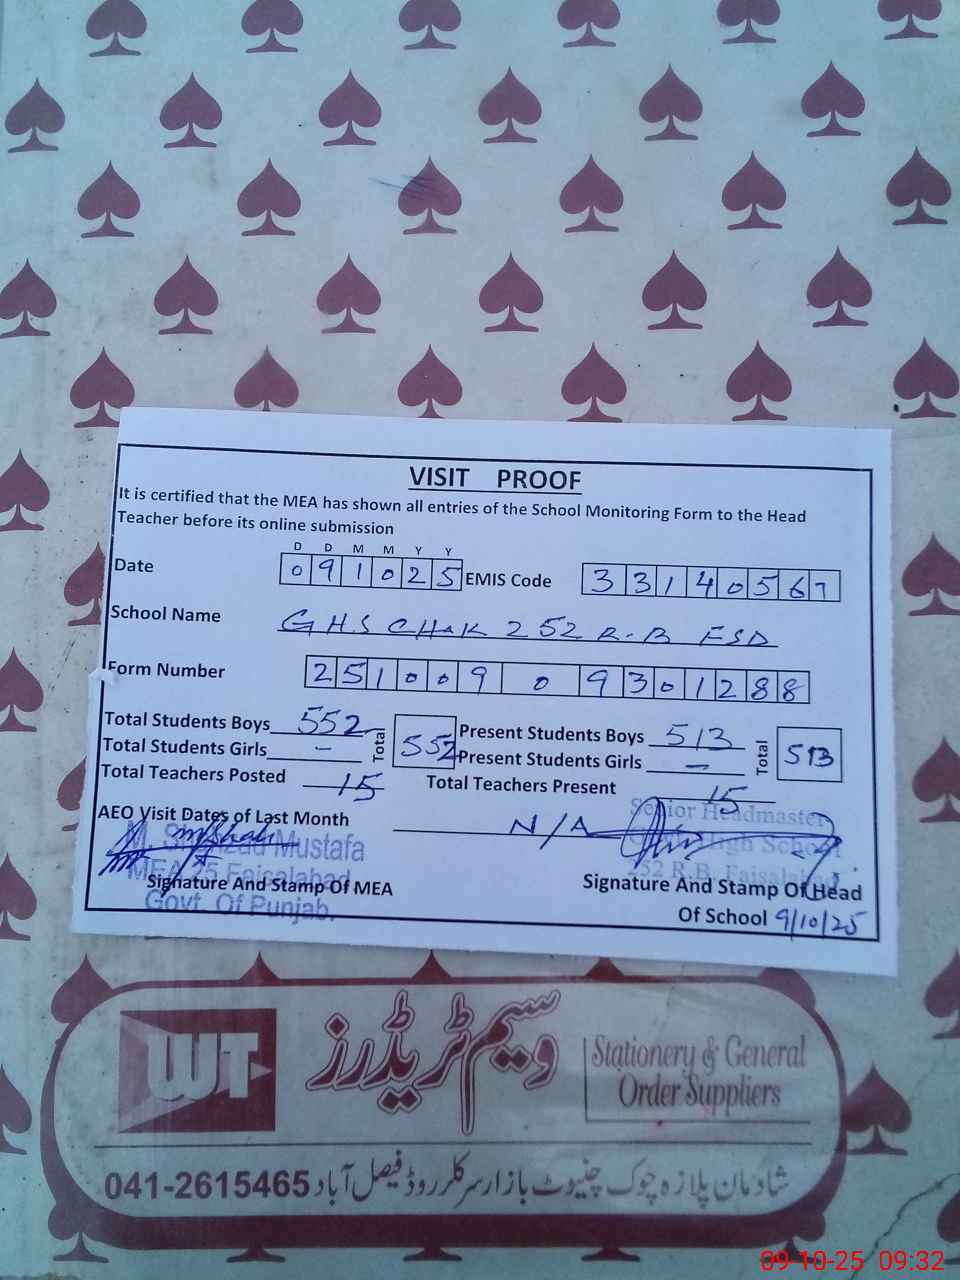 VISIT PROOF
It is certified that the MEA has shown all entries of the School Monitoring Form to the Head
Teacher before its online submission
D D M M Y Y
Date 0 9 1 0 2 5 EMIS Code 3 3 1 4 0 5 6 7
School Name GHS CHAK 252 R-B FSD
Form Number 2 5 1 0 0 9 0 9 3 0 1 2 8 8
Total Students Boys 552 Total 552 Present Students Boys 513 Total 513
Total Students Girls - Present Students Girls -
Total Teachers Posted 15 Total Teachers Present 15
AEO Visit Dates of Last Month N/A
Senior Headmaster
High School
252 R.B. Faisalabad
Mustafa
MEA 25 Faisalabad
Govt. Of Punjab.
Signature And Stamp Of MEA
Signature And Stamp Of Head
Of School 9/10/25
WT
وسیم ٹریڈرز
Stationery & General
Order Suppliers
شادمان پلازہ چوک چنیوٹ بازار سرکلر روڈ فیصل آباد 041-2615465
09-10-25 09:32